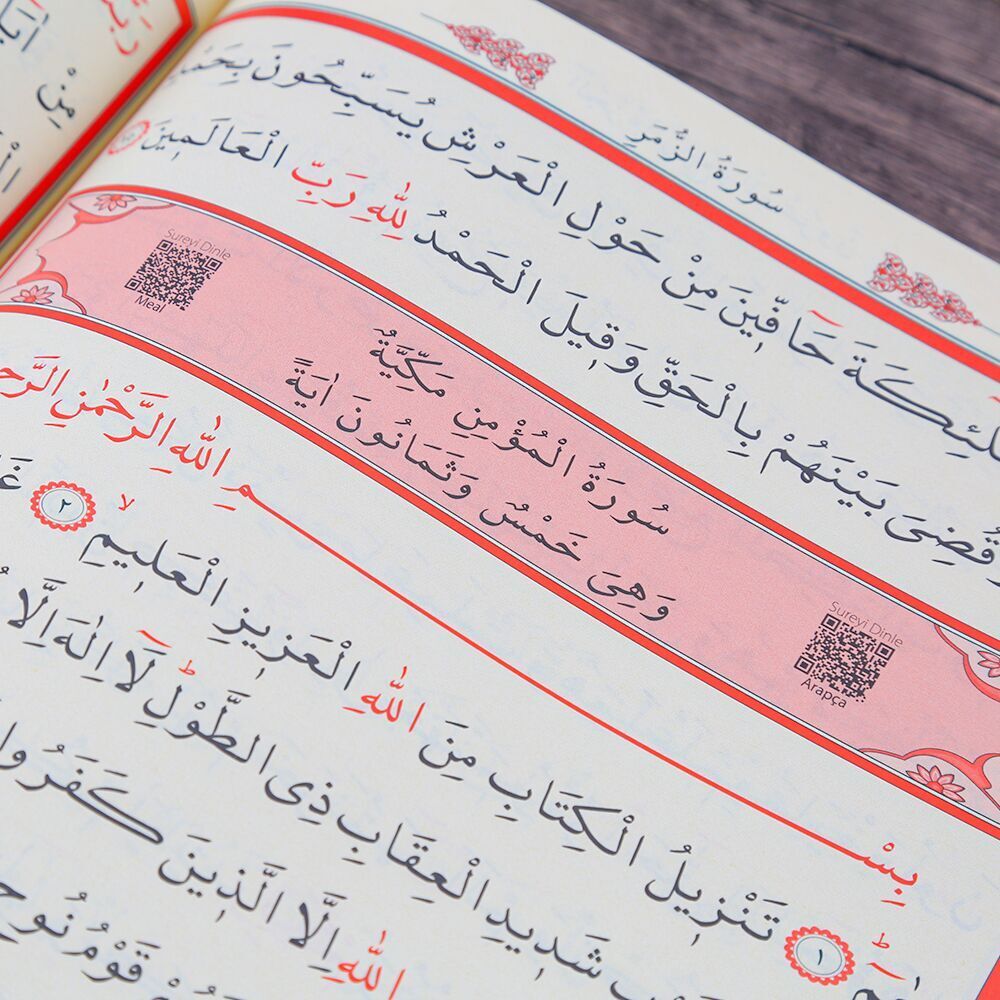 سُورَةُ الزُّمَرِ
حَآفّ۪ينَ مِنْ حَوْلِ الْعَرْشِ يُسَبِّحُونَ
قُضِىَ بَيْنَهُمْ بِالْحَقِّ وَق۪يلَ الْحَمْدُ لِلّٰهِ رَبِّ الْعَالَم۪ينَ ٧٥
Sureyi Dinle
Meal
سُورَةُ الْمُؤْمِنِ مَكِّيَّةٌ
وَهِىَ خَمْسٌ وَثَمَانُونَ اٰيَةً
Sureyi Dinle
Arapça
بِسْمِ اللّٰهِ الرَّحْمٰنِ
١ تَنْز۪يلُ الْكِتَابِ مِنَ اللّٰهِ الْعَز۪يزِ الْعَل۪يمِ ٢
شَد۪يدِ الْعِقَابِ ذِى الطَّوْلِ لَآ اِلٰهَ اِلَّا
اللّٰهِ اِلَّا الَّذ۪ينَ كَفَرُوا
قَوْمُ نُوحٍ
مِنْ